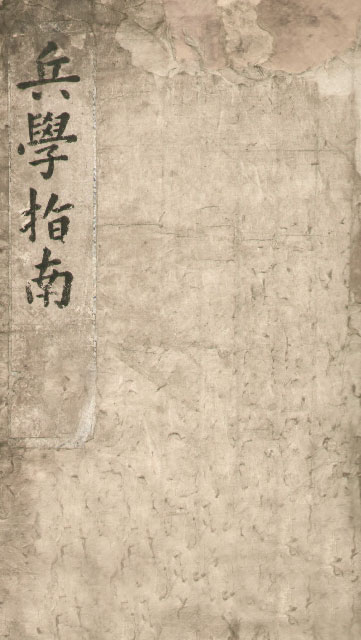 兵學指南